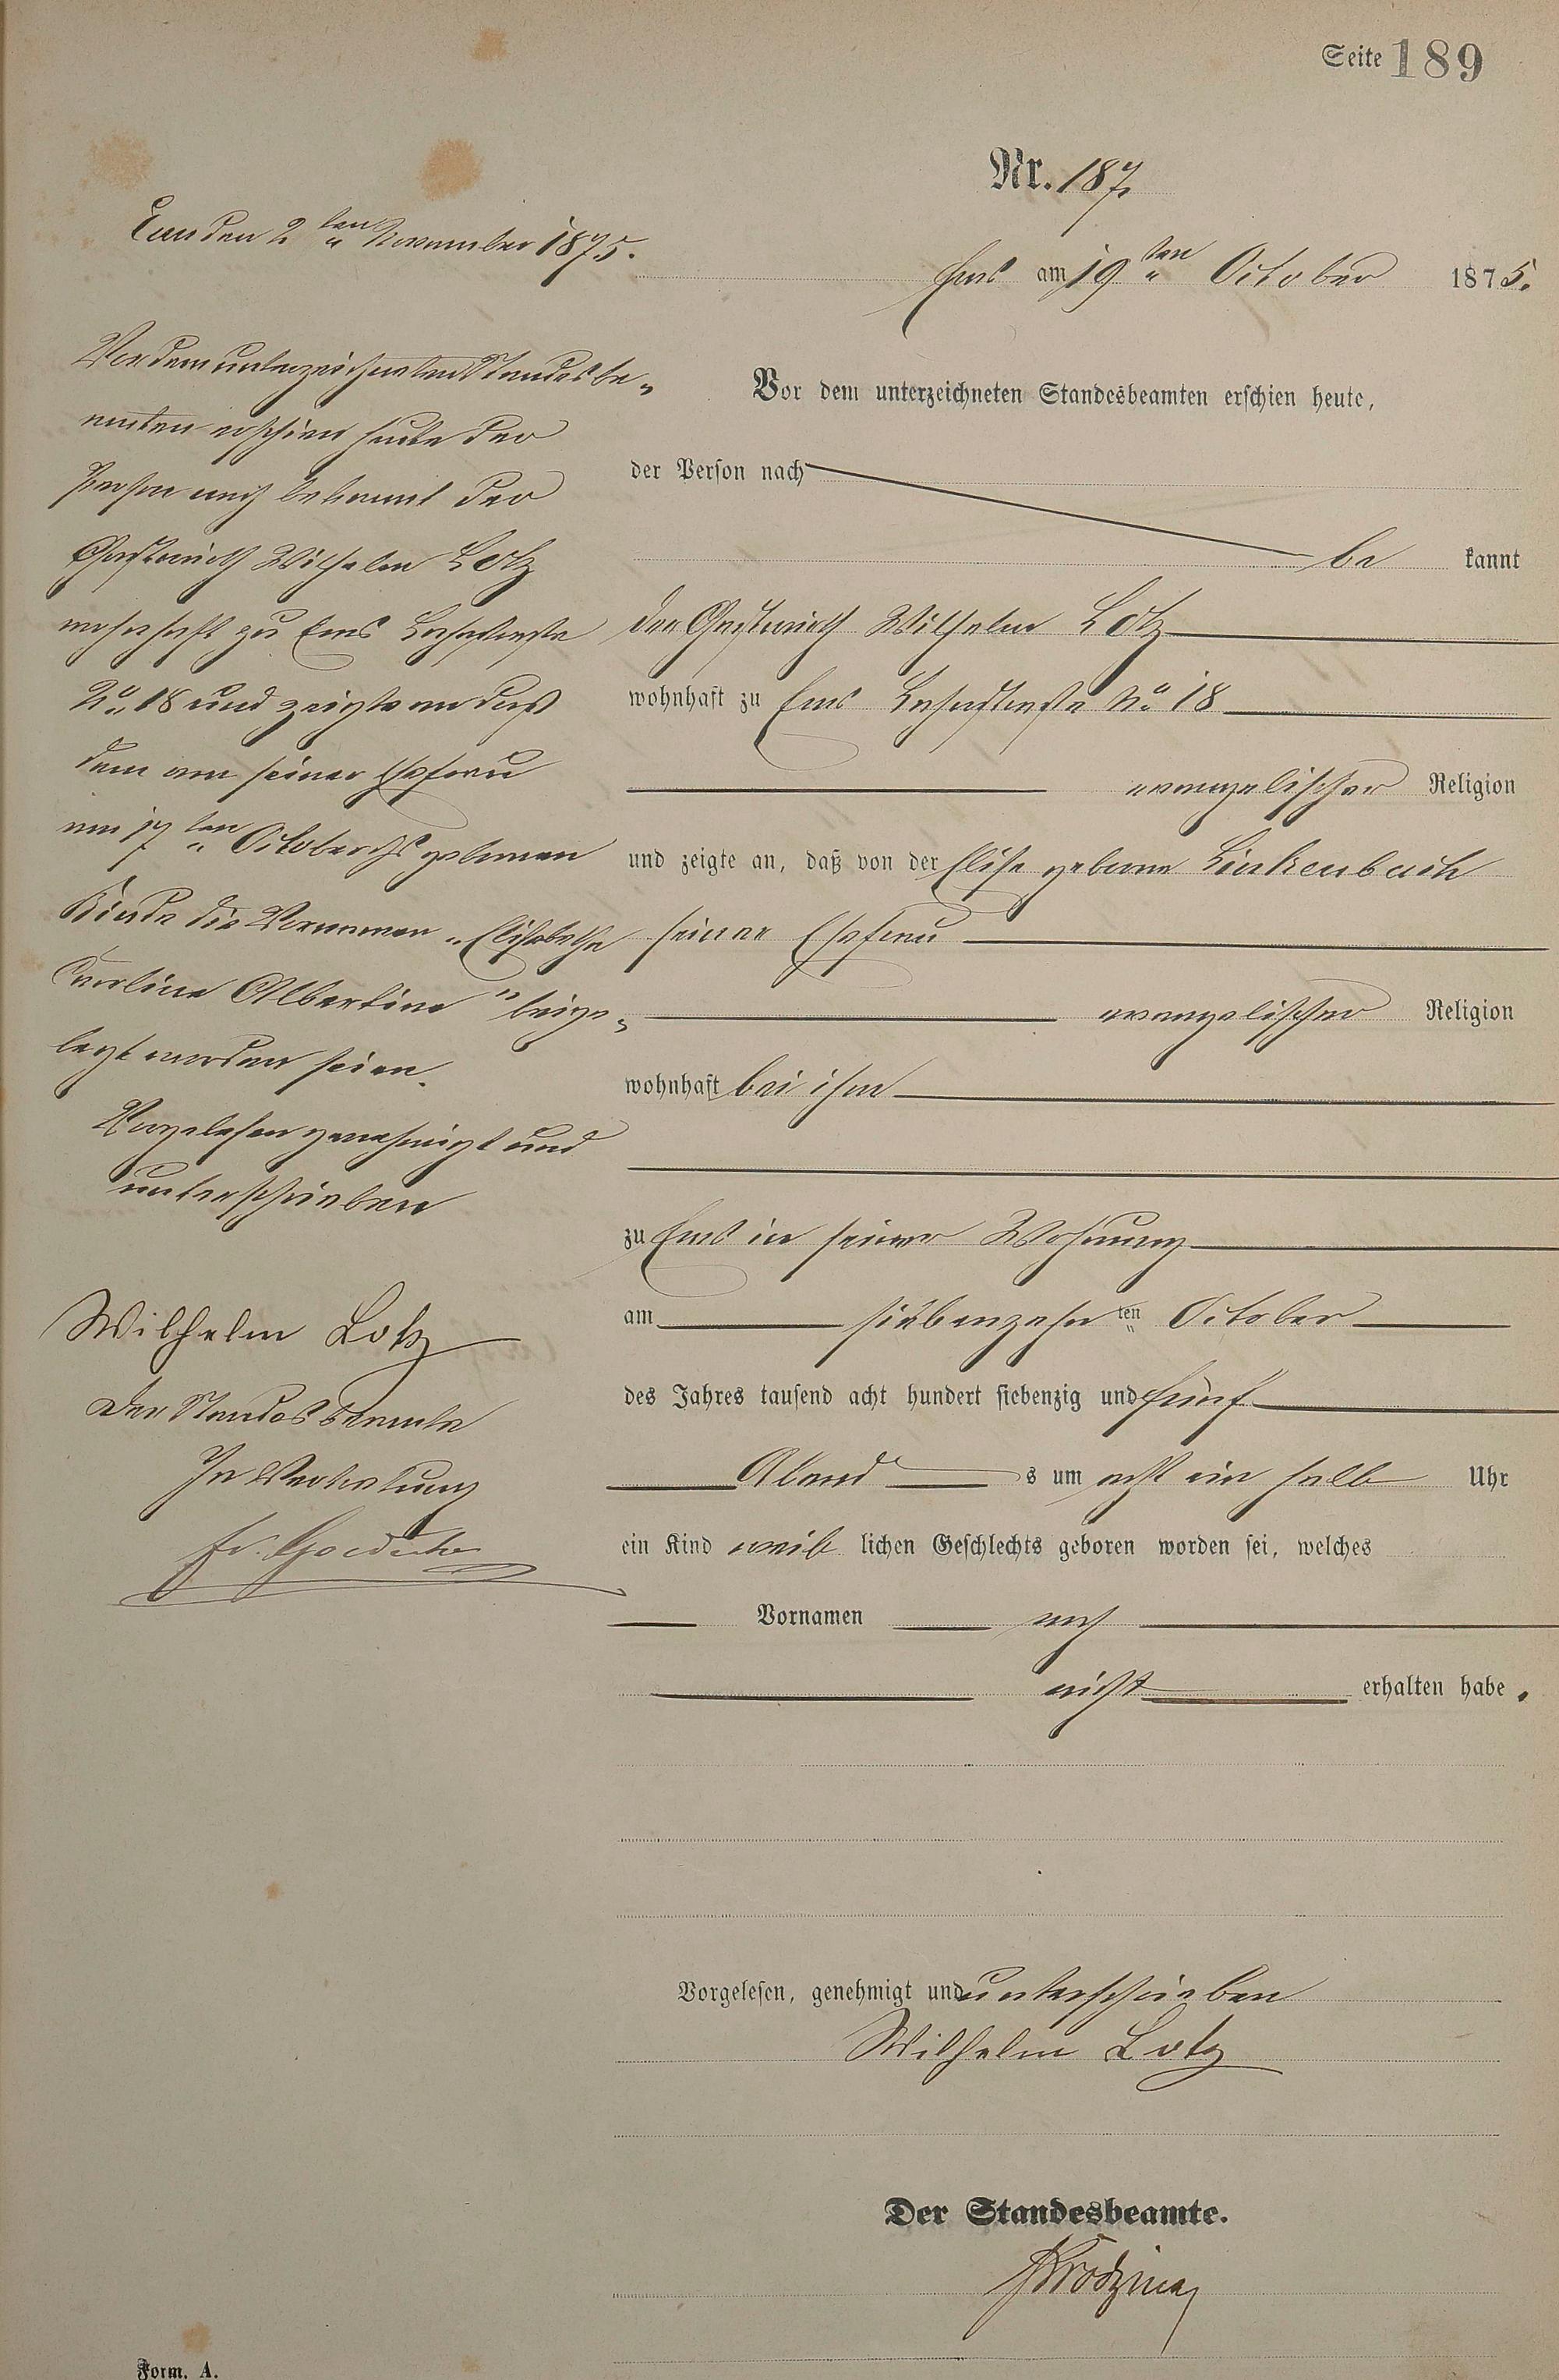 Seite 189
Nr. 187.
Ems am 19ten October 1875.
Vor dem unterzeichneten Standesbeamten erschien heute,
der Person nach
be kannt
der Gastwirth Wilhelm Lotz
wohnhaft zu Ems Lahnstraße No 18
evangelischer Religion
und zeigte an, daß von der Elise geborne Linkenbach
seiner Ehefrau
evangelischer Religion
wohnhaft bei ihm
zu Ems in seiner Wohnung
am siebenzehnten October
des Jahres tausend acht hundert siebenzig und fünf
Abend s um acht ein halb Uhr
ein Kind weib lichen Geschlechts geboren worden sei, welches
Vornamen noch
nicht erhalten habe.
Vorgelesen, genehmigt und unterschrieben
Wilhelm Lotz
Der Standesbeamte.
Ems den 2ten November 1875.
Vor dem unterzeichneten Standesbe„
amten erschien heute der
Person nach bekannt der
Gastwirth Wilhelm Lotz
wohnhaft zu Ems Lahnstraße
No 18 und zeigte an daß
dem von seiner Ehefrau
am 17ten October geborenen
Kinde die Vornamen „Elisabethe
Caroline Albertine" beige„
legt worden seien.
Vorgelesen genehmigt und
unterschrieben
Wilhelm Lotz
Der Standesbeamte
In Vertretung
Form. A.